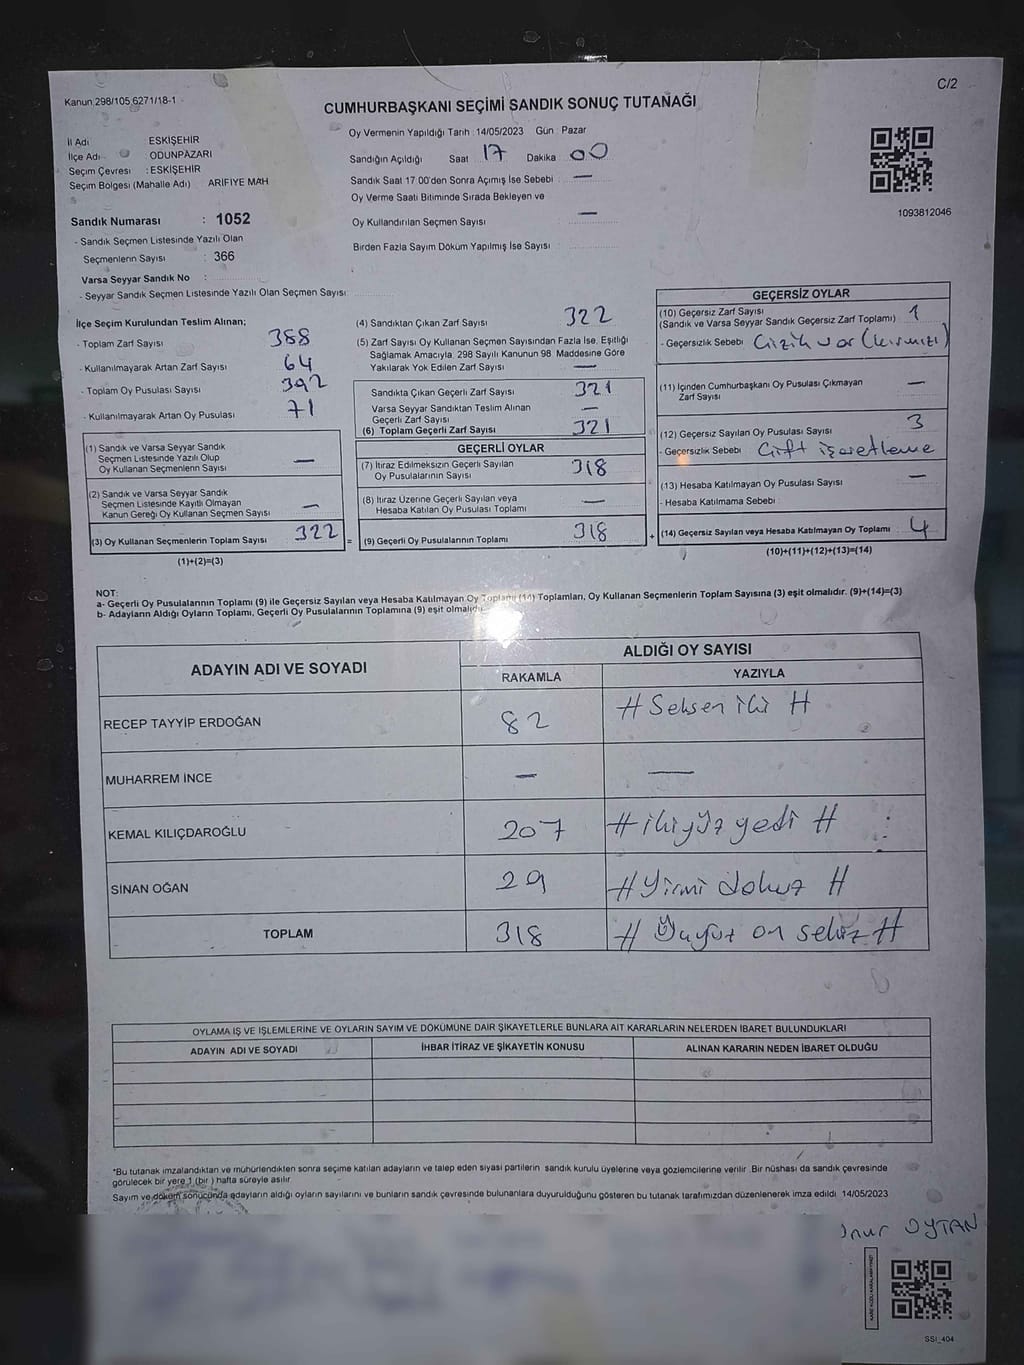 Kanun 298/105 6271/18-1
C/2
CUMHURBAŞKANI SEÇİMİ SANDIK SONUÇ TUTANAĞI
İl Adı ESKİŞEHİR
İlçe Adı ODUNPAZARI
Seçim Çevresi : ESKİŞEHİR
Seçim Bölgesi (Mahalle Adı) ARIFIYE MAH
Sandık Numarası : 1052
- Sandık Seçmen Listesinde Yazılı Olan
Seçmenlerin Sayısı : 366
Varsa Seyyar Sandık No :
- Seyyar Sandık Seçmen Listesinde Yazılı Olan Seçmen Sayısı
Oy Vermenin Yapıldığı Tarih : 14/05/2023 Gün : Pazar
Sandığın Açıldığı Saat 17 Dakika 00
Sandık Saat 17 00'den Sonra Açımış İse Sebebi —
Oy Verme Saati Bitiminde Sırada Bekleyen ve
Oy Kullandırılan Seçmen Sayısı —
Birden Fazla Sayım Döküm Yapılmış İse Sayısı
1093812046
İlçe Seçim Kurulundan Teslim Alınan;
- Toplam Zarf Sayısı 388
- Kullanılmayarak Artan Zarf Sayısı 64
- Toplam Oy Pusulası Sayısı 392
- Kullanılmayarak Artan Oy Pusulası 71
(1) Sandık ve Varsa Seyyar Sandık
Seçmen Listesinde Yazılı Olup
Oy Kullanan Seçmenlerin Sayısı —
(2) Sandık ve Varsa Seyyar Sandık
Seçmen Listesinde Kayıtlı Olmayan
Kanun Gereği Oy Kullanan Seçmen Sayısı —
(3) Oy Kullanan Seçmenlerin Toplam Sayısı 322 =
(1)+(2)=(3)
(4) Sandıktan Çıkan Zarf Sayısı 322
(5) Zarf Sayısı Oy Kullanan Seçmen Sayısından Fazla İse, Eşitliği
Sağlamak Amacıyla, 298 Sayılı Kanunun 98 Maddesine Göre
Yakılarak Yok Edilen Zarf Sayısı —
Sandıkta Çıkan Geçerli Zarf Sayısı 321
Varsa Seyyar Sandıktan Teslim Alınan
Geçerli Zarf Sayısı —
(6) Toplam Geçerli Zarf Sayısı 321
GEÇERLİ OYLAR
(7) İtiraz Edilmeksizin Geçerli Sayılan
Oy Pusulalarının Sayısı 318
(8) İtiraz Üzerine Geçerli Sayılan veya
Hesaba Katılan Oy Pusulası Toplamı —
(9) Geçerli Oy Pusulalarının Toplamı 318 +
GEÇERSİZ OYLAR
(10) Geçersiz Zarf Sayısı
(Sandık ve Varsa Seyyar Sandık Geçersiz Zarf Toplamı) 1
- Geçersizlik Sebebi Çizik var (kırmızı)
(11) İçinden Cumhurbaşkanı Oy Pusulası Çıkmayan
Zarf Sayısı —
(12) Geçersiz Sayılan Oy Pusulası Sayısı 3
- Geçersizlik Sebebi Çift işaretleme
(13) Hesaba Katılmayan Oy Pusulası Sayısı —
- Hesaba Katılmama Sebebi
(14) Geçersiz Sayılan veya Hesaba Katılmayan Oy Toplamı 4
(10)+(11)+(12)+(13)=(14)
NOT:
a- Geçerli Oy Pusulalarının Toplamı (9) ile Geçersiz Sayılan veya Hesaba Katılmayan Oy Toplamı (14) Toplamları, Oy Kullanan Seçmenlerin Toplam Sayısına (3) eşit olmalıdır. (9)+(14)=(3)
b- Adayların Aldığı Oyların Toplamı, Geçerli Oy Pusulalarının Toplamına (9) eşit olmalıdır
ADAYIN ADI VE SOYADI ALDIĞI OY SAYISI
RAKAMLA YAZIYLA
RECEP TAYYİP ERDOĞAN 82 # Seksen iki #
MUHARREM İNCE — —
KEMAL KILIÇDAROĞLU 207 # ikiyüz yedi #
SİNAN OĞAN 29 # Yirmi dokuz #
TOPLAM 318 # Üçyüz on sekiz #
OYLAMA İŞ VE İŞLEMLERİNE VE OYLARIN SAYIM VE DÖKÜMÜNE DAİR ŞİKAYETLERLE BUNLARA AİT KARARLARIN NELERDEN İBARET BULUNDUKLARI
ADAYIN ADI VE SOYADI İHBAR İTİRAZ VE ŞİKAYETİN KONUSU ALINAN KARARIN NEDEN İBARET OLDUĞU
*Bu tutanak imzalandıktan ve mühürlendikten sonra seçime katılan adayların ve talep eden siyasi partilerin sandık kurulu üyelerine veya gözlemcilerine verilir. Bir nüshası da sandık çevresinde
görülecek bir yere 1 (bir) hafta süreyle asılır
Sayım ve döküm sonucunda adayların aldığı oyların sayılarını ve bunların sandık çevresinde bulunanlara duyurulduğunu gösteren bu tutanak tarafımızdan düzenlenerek imza edildi 14/05/2023
OYTAN
SSI_404